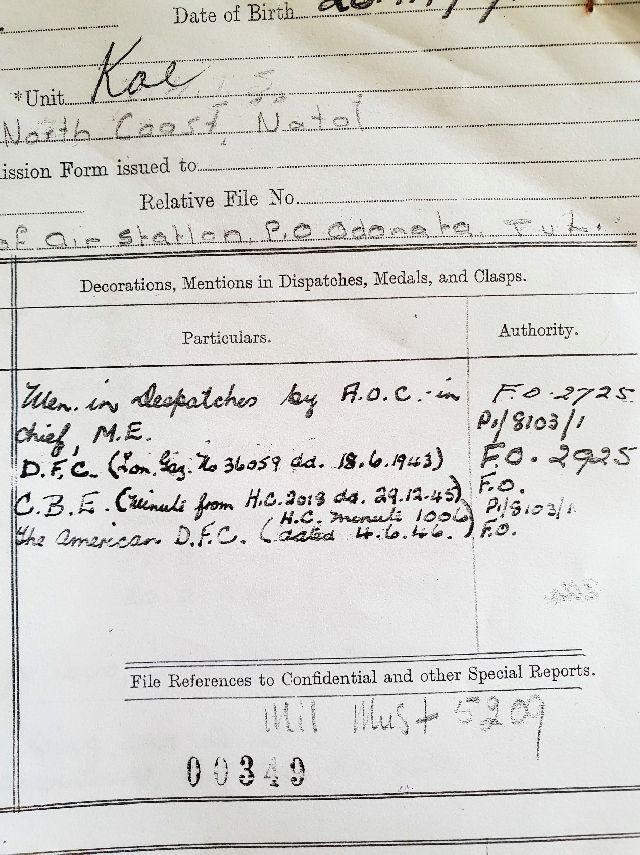 Date of Birth
*Unit
North Coast, Natal
ission Form issued to
Relative File No.
of air station, P.O
Decorations, Mentions in Dispatches, Medals, and Clasps.
Particulars. Authority.
Men. in Despatches by A.O.C.-in F.O. 2725.
Chief, M.E. P.1/8103/1
D.F.C. (Lon. Gaz. No 36059 dd. 18.6.1943) F.O. 2925
C.B.E. (Minute from H.C. 2018 dd. 29.12.45) F.O.
H.C. minute 1006 P1/8103/1
the American D.F.C. (dated 4.6.46.) F.O.
File References to Confidential and other Special Reports.
Mil Must 5209
00349